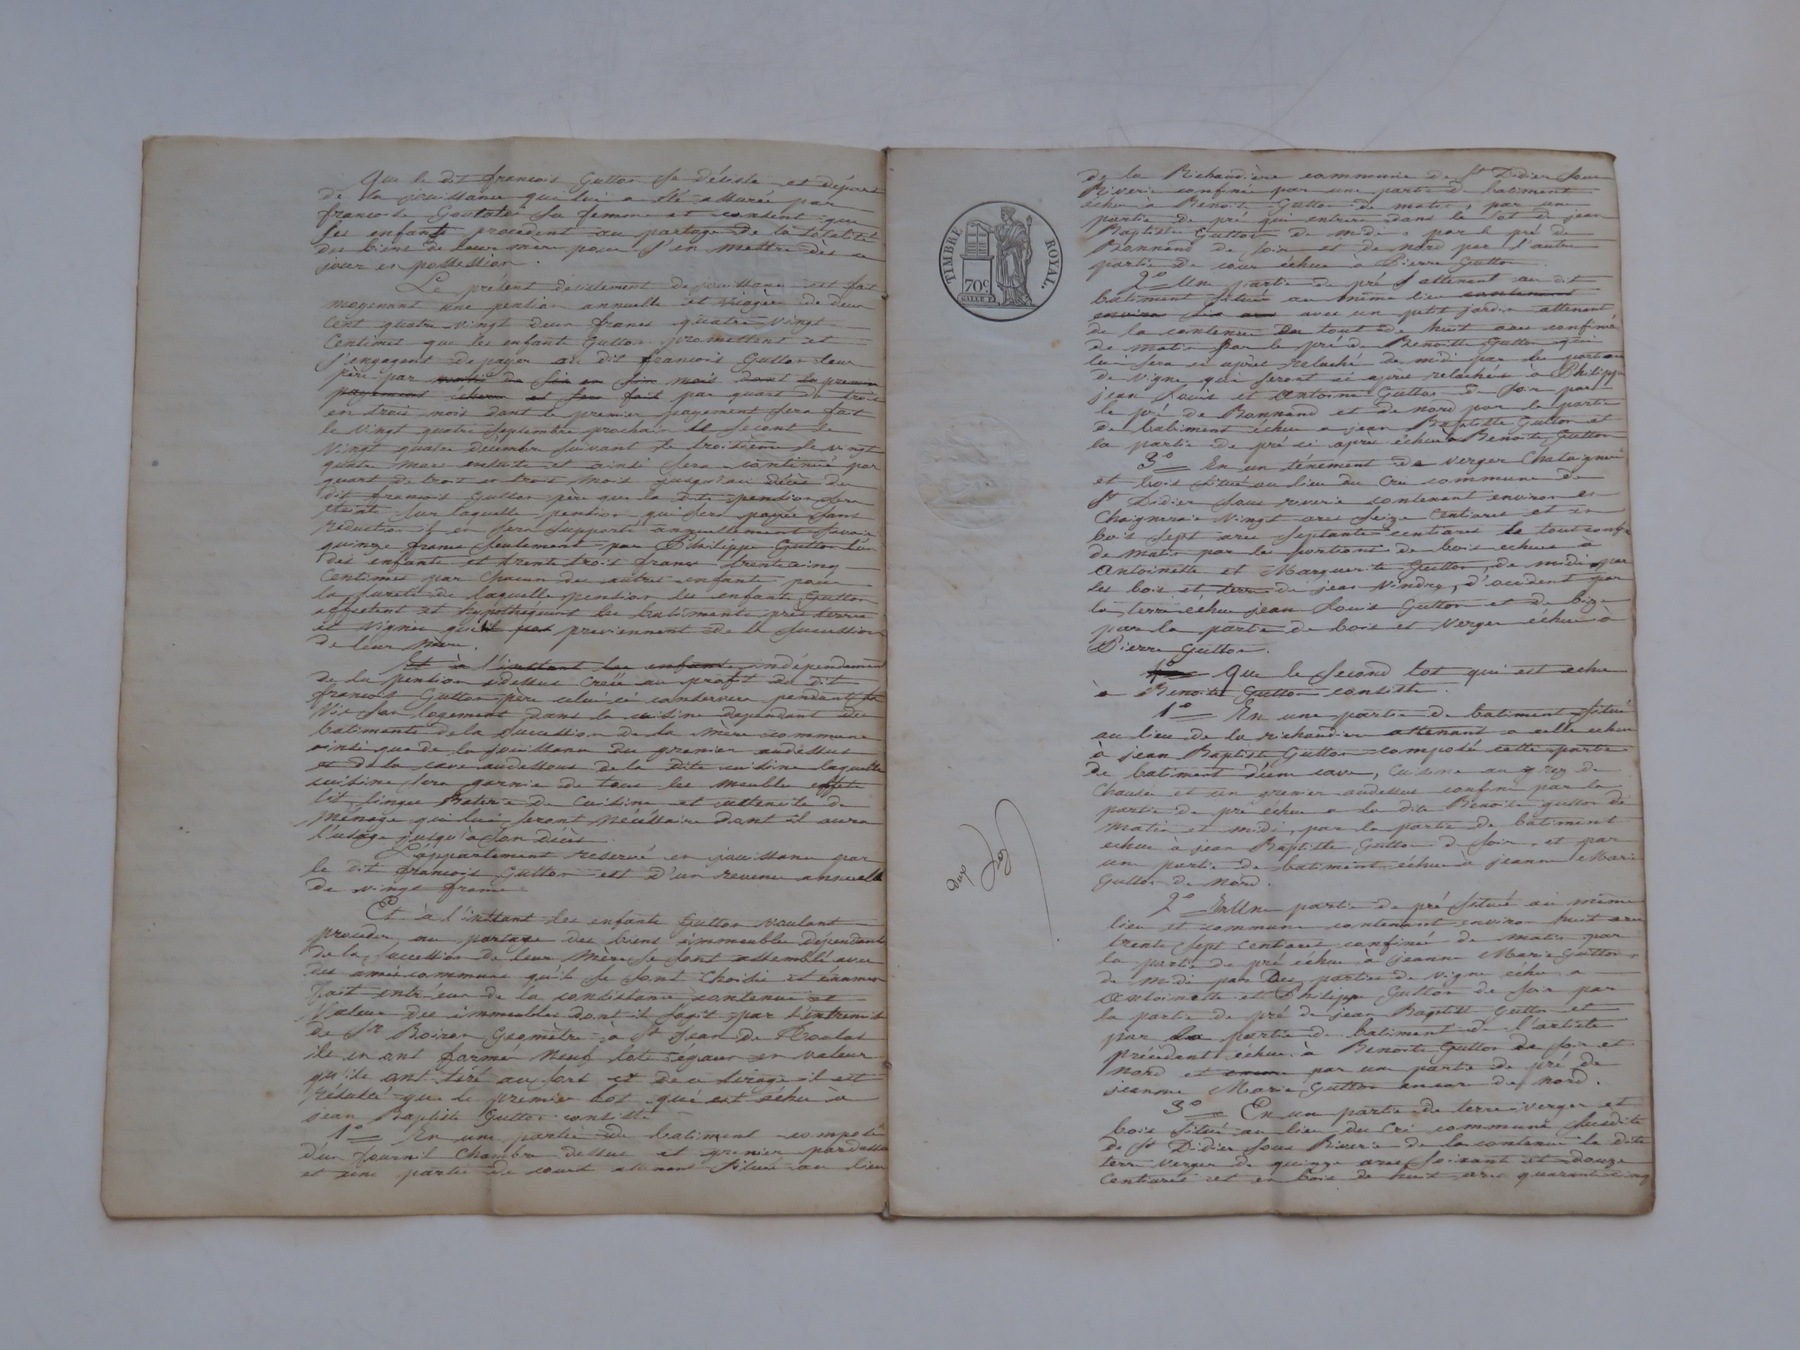 Que le dit françois Gutton se désiste et départ
de la jouissance qui lui a été assurée par
françoise Goutale sa femme et consent que
ses enfants procèdent au partage de la totalité
des biens de leur mère pour s'en mettre dès ce
jour en possession.
Le présent désistement de jouissance est fait
moyenant une pention annuelle et viagère de deux
cent quatre vingt deux francs quatre vingt
centimes que les enfants Gutton promettent et
s'engagent de payer au dit françois Gutton leur
père par moitié de six en six mois dont le premier
payement echera et sera fait par quart de trois
en trois mois dont le premier payement sera fait
le vingt quatre septembre prochain le second le
vingt quatre décembre suivant le troisième le vingt
quatre mars ensuite et ainsi sera continué par
quart de trois en trois mois jusqu'au décès du
dit françois Gutton père que la dite pension sera
éteinte sur laquelle pention qui sera payée sans
réduction il en sera supporté annuelement savoir
quinze francs seulement par Philippe Gutton l'un
des enfants et trente trois francs trente cinq
centimes par chacun des autres enfants pour
la sureté de laquelle pention les enfants Gutton
affectent et hypothéquent les batiments prés terres
et vignes qui proviennent de la succession
de leur mère.
Et à l'instant les enfants indépendament
de la pention cidessus créée au profit du dit
françois Gutton père celui ci conservera pendant sa
vie son logement dans la cuisine dependant des
batiments de la succession de la mère commune
ainsi que de la jouissance du grenier audessus
et de la cave audessous de la dite cuisine laquelle
cuisine sera garnie de tous les meubles effets
lit linges Baterie de cuisine et ustencile de
ménage qui lui seront nécéssaire dont il aura
l'usage jusqu'a son décès.
L'appartement reservé en jouissance par
le dit françois Gutton est d'un revenu annuelle
de vingt francs
Et à l'instant les enfants Gutton voulant
proceder au partage des biens immeubles dépendant
de la succession de leur mère se sont assemblé avec
des amis communs qu'ils se sont choisi et examen
fait entr'eux de la consistance contenue et
valeur des immeubles dont il s'agit par l'intremise
de Sr Boiron Géomètre à St Jean de Toulas
ils en ont formé neuf lots égaux en valeur
qu'ils ont tiré au sort et de ce tirage il est
résulté que le premier lot qui est échu à
jean Baptiste Gutton consiste
1° En une partie de batiment composé
d'un fournil chambre dessus et grenier pardessus
et une partie de cour attenant située au lieu
TIMBRE ROYAL
70c
de la Richaudière commune de St Didier sous
Riverie confinée par une partie de batiment
échue à Benoite Gutton de matin, par une
partie de pré qui entrera dans le lot de jean
Baptiste Gutton de midi, par le pré de
Bonnand de soir et de nord par l'autre
partie de cour échue à Pierre Gutton.
2° Une partie de pré s attenant au dit
batiment située au même lieu contenant
environ six ares avec un petit jardin attenant
de la contenue du tout de huit ares confiné
de matin par le pré de Benoitte Gutton qui
lui sera ci après relaché de midi par les portions
de vigne qui seront ci après relachés à Philippe
jean Louis et Antoine Gutton de soir par
le pré de Bonnand et de nord par la partie
de batiment échue a jean Baptiste Gutton et
la partie de pré si après échue à Benoite Gutton
3° En un ténement de verger chataignier
et bois situé au lieu du Cri commune de
St Didier sous riverie contenant environ en
Chaigneraie vingt ares seize centiares et en
bois sept ares septante centiares le tout confiné
de matin par les portions de bois échues à
Antoinette et Marguerite Gutton, de midi par
les bois et terre de jean Vindry, d'occident par
la terre échue jean Louis Gutton et de bize
par la partie de bois et verger échue à
Pierre Gutton.
Que le second lot qui est echu
à Benoite Gutton consiste.
1° En une partie de batiment situé
au lieu de la richaudiere attenant a celle echue
à jean Baptiste Gutton composé cette partie
de batiment d'une cave, cuisine au rez de
chaussée et un grenier audessus confiné par la
partie de pré échue a la dite Benoite gutton de
matin et midi, par la partie de batiment
echue a jean Baptiste Gutton de soir, et par
une partie de batiment échue a jeanne Marie
Gutton de nord.
2° En une partie de pré situé au même
lieu et commune contenant environ huit ares
trente sept centiares confinée de matin par
la partie de pré échue à jeanne Marie Gutton,
de midi par des parties de vigne echue a
Antoinette et Philippe Gutton de soir par
la partie de pré de jean Baptiste Gutton et
par la partie de batiment de l'article
précédent échue à Benoite Gutton de soir et
nord et encore par une partie de pré de
jeanne Marie Gutton encor de nord.
3° En une partie de terre verger et
bois situé au lieu du Cri commune susdite
de St Didier sous Riverie de la contenue la dite
terre verger de quinze ares soixante et douze
centiares et en bois de huit ares quarante cinq